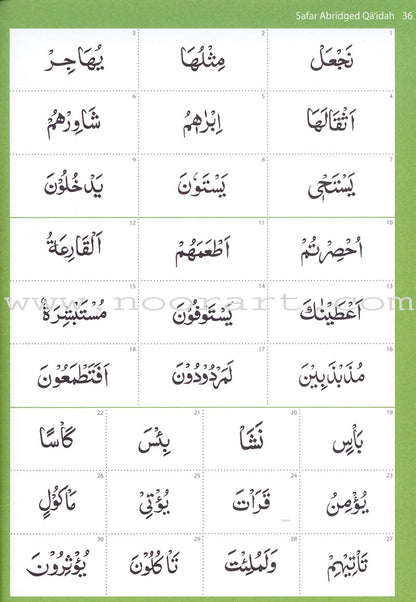 Safar Abridged Qā'idah 36
1 نَجْعَلْ 2 مِثْلُهَا 3 يُهَاجِرْ
4 اَثْقَالَهَا 5 اِبْرٰهِمُ 6 شَاوِرْهُمْ
7 يَسْتَحْيٖ 8 يَسْتَوٗنَ 9 يَدْخُلُوْنَ
10 اُحْصِرْتُمْ 11 اَطْعَمَهُمْ 12 اَلْقَارِعَةُ
13 اَعْطَيْنٰكَ 14 يَسْتَوْفُوْنَ 15 مُسْتَبْشِرَةٌ
16 مُذَبْذَبِيْنَ 17 لَمَرْدُوْدُوْنَ 18 اَفَتَطْمَعُوْنَ
www.noorart.com
19 بَاْسٍ 20 نَشَاْ 21 بِئْسَ 22 كَاْسًا
23 يُؤْمِنُ 24 قَرَاْتَ 25 يُؤْتِيْ 26 مَاْكُوْلٍ
27 تَاْتِيْهِمْ 28 وَلَمُلِئْتَ 29 تَاْكُلُوْنَ 30 يُؤْثِرُوْنَ